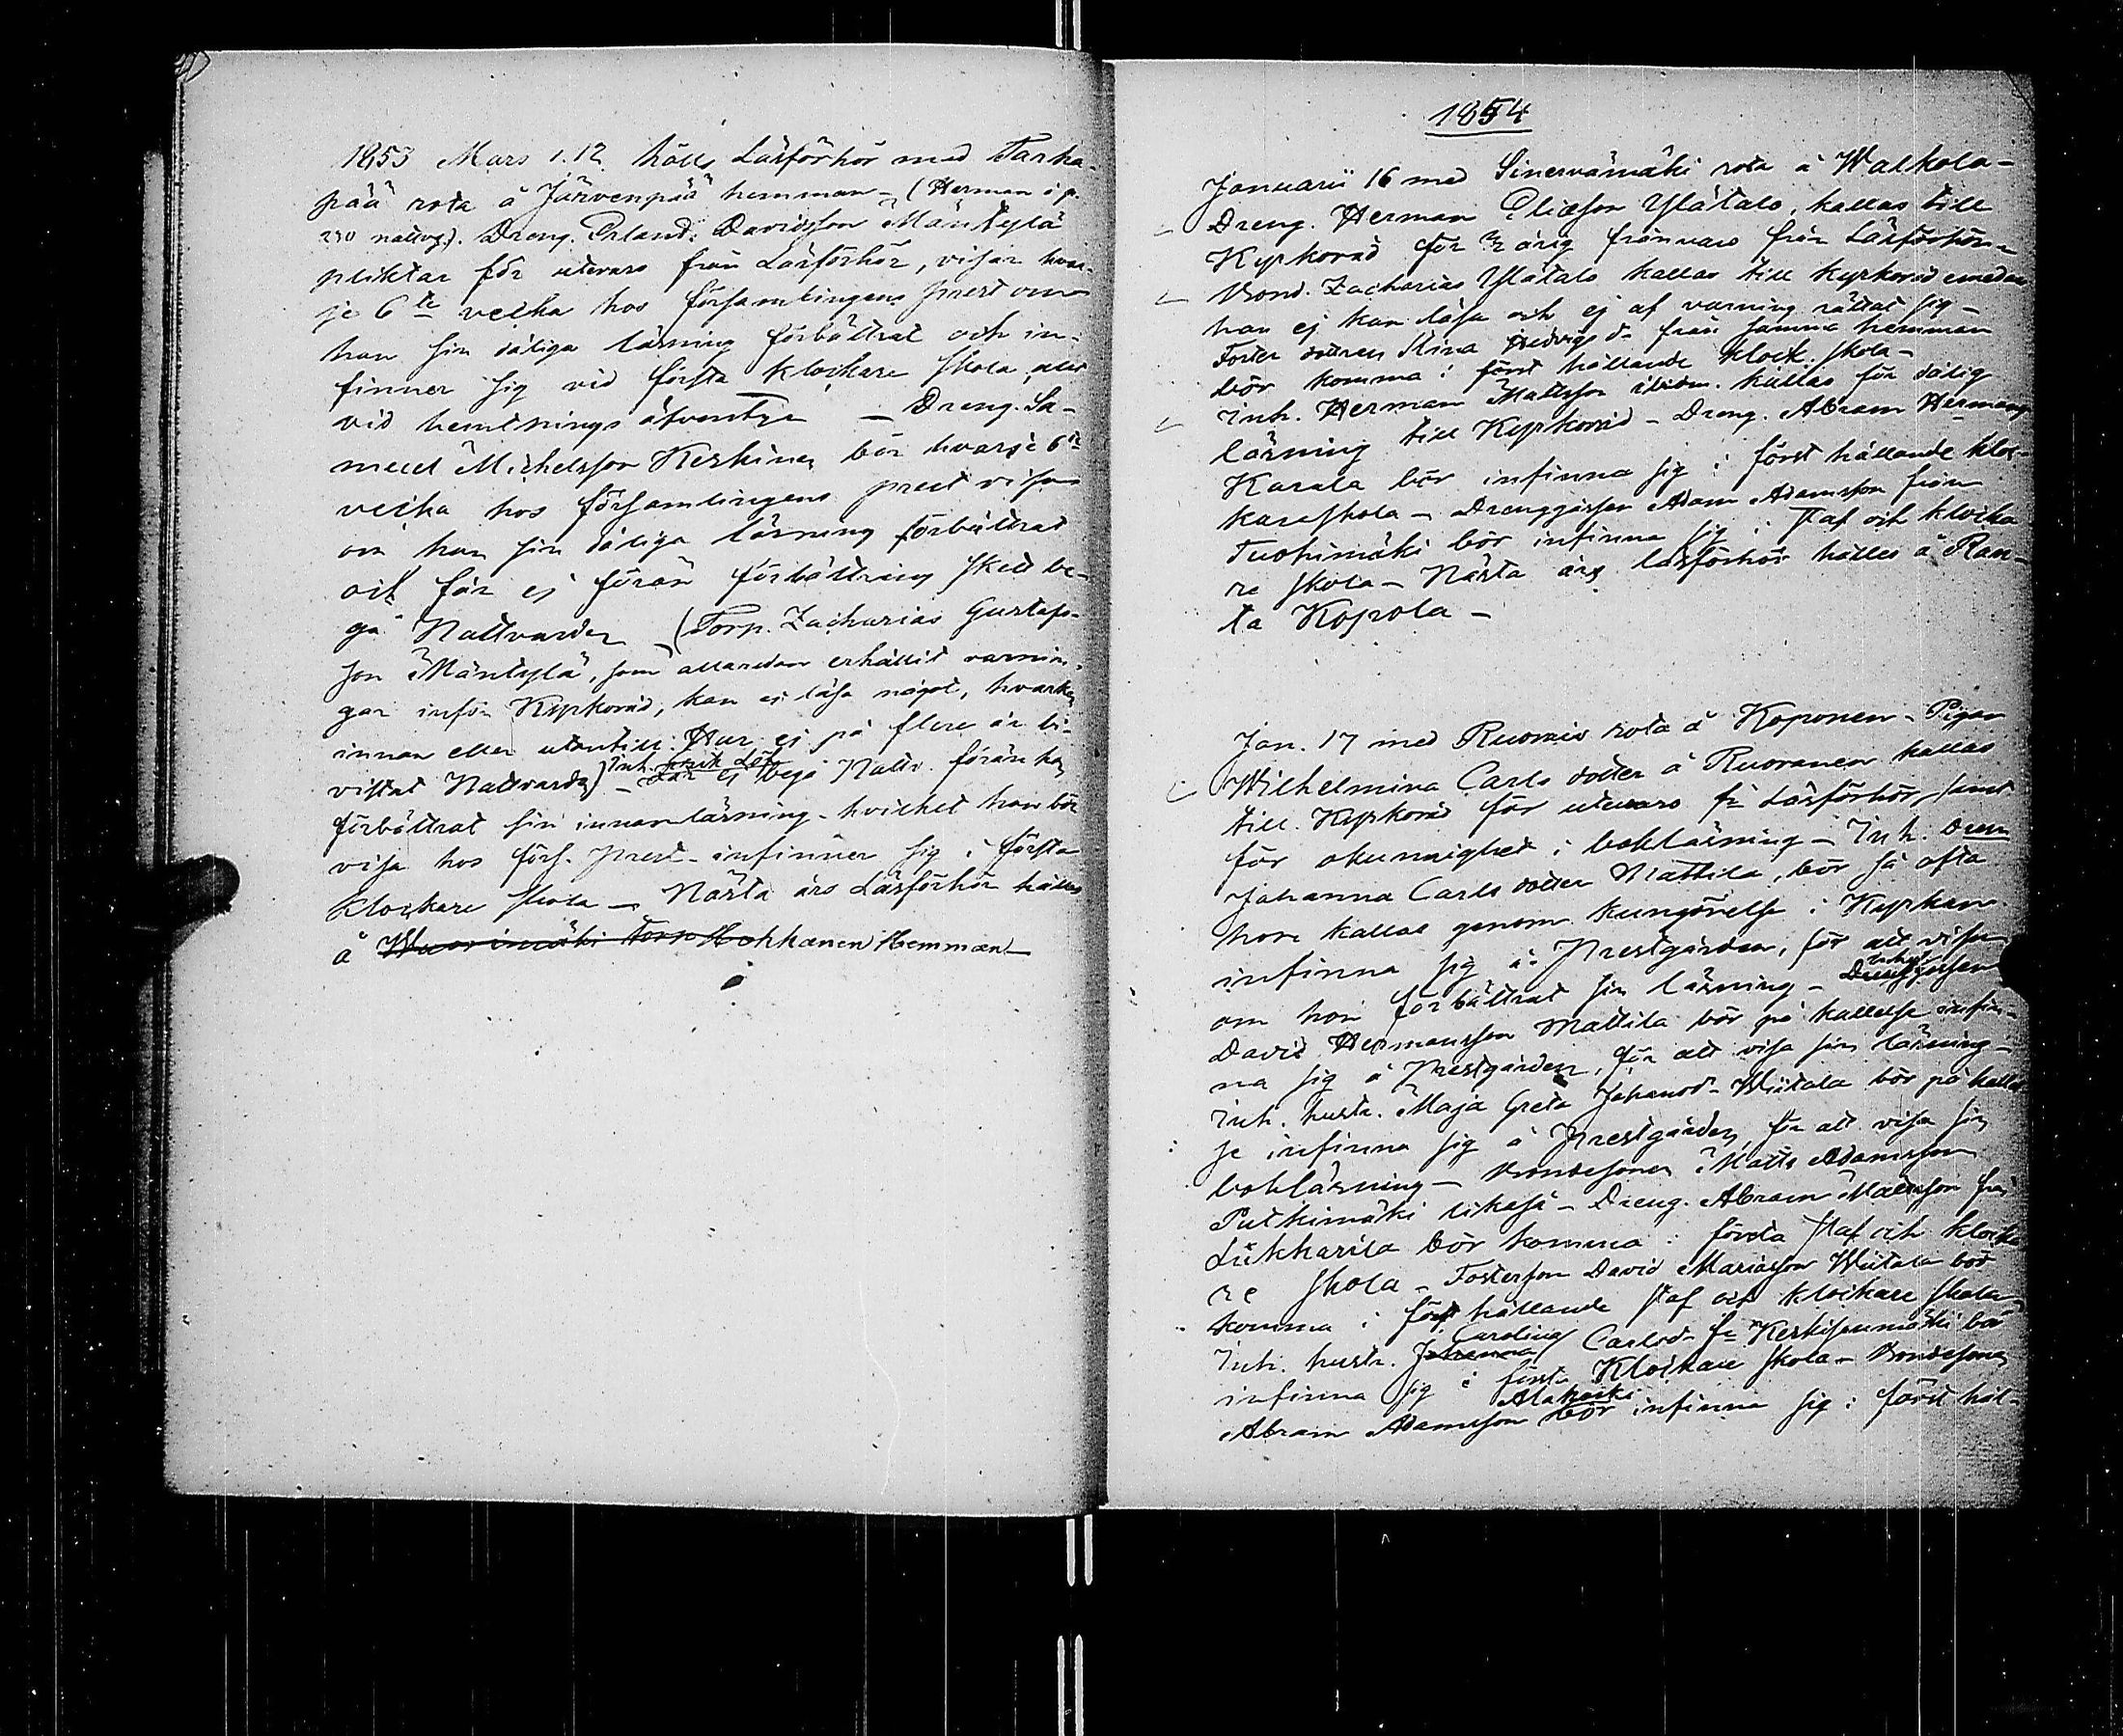 1853 Mars 1.12 hålls Läsförhör med Tarha-
pää rota å Järvenpää hemman - (Herman i p.
230 nattvg). Dreng. Erland Davidsson Mäntylä
pliktar för utevaro från Läsförhör, visar hvar-
je 6te vecka hos församlingens prest om
han sin dåliga läsning förbättrat och in-
finner sig vid första klockare skola, allt
vid hemtnings äfventyr - Dreng. Sa-
muel Michelsson Keskinen bör hvarje 6te
vecka hos församlingens prest visa
om han sin dåliga läsning förbättrat
och får ej förän förbättring skett be-
gå Nattvarden (Torp. Zacharias Gustafs-
son Mäntylä, som allaredan erhållit varnin-
gar inför Kyrkoråd, kan ej läsa något, hvarken
innan eller utantill. Har ej på flere år bi-
vistat Nattvarden) - Får ej begå Nattv. förän han
förbättrat sin innanläsning - hvilket han bör
visa hos förs. prest - infinner sig i första
klockare skola - Nästa års Läsförhör hålles
å Hokkanen Hemman -
1854
Januarii 16 med Sinervämäki rota å Walkola -
Dreng. Herman Eliasson Ylätalo, kallas till
Kyrkoråd för årig frånvaro från Läsförhör -
Bond. Zacharias Ylätalo kallas till kyrkoråd emedan
han ej kan läsa och ej af varning rättat sig -
Foster dottren Stina Hedvigs d. från samma hemman
bör komma i först hållande klock. skola -
Inh. Herman Mattsson ibidm. kallas för dålig
läsning till Kyrkoråd - Dreng. Abram Hermans.
Karala bör infinna sig i först hållande kloc-
kareskola - Drenggåssen Adam Adamsson från
Tuohimäki bör infinna sig i staf och klocka-
re skola - Nästa års läsförhör hålles å Ran-
ta Kopola -
Jan. 17 med Ruomis rota å Koponen - Pigan
Wilhelmina Carls dotter å Ruoranen kallas
till Kyrkoråd för utevaro fr Läsförhör, samt
för okunnighet i bokläsning - Inh. dren
Johanna Carls dotter Mattila, bör så ofta
hon kallas genom kungörelse i Kyrkan
infinna sig å Prestgården, för att visa
om hon förbättrat sin läsning -
David Hermansson Mattila bör på kallelse infin-
na sig å Prestgården, för att visa sin läsning -
Inh. hustr. Maja Greta Johansd. Wiitala bör på kallel-
se infinna sig å Prestgården, för att visa sin
bokläsning - Bondesonen Matts Adamsson
Putkimäki likaså - Dreng. Abram Mattsson från
Liikkarila bör komma i första staf och klocka
re skola - Fosterson David Mariasson Wiitala bör
komma i först hållande staf och klockare skola
Inh. hustr. Johanna Carolina Carlsd. fr Keskisenmäki bör
infinna sig i första Klockare skola - Bondesonen
Abram Adamsson Alakoski bör infinna sig i först hål-